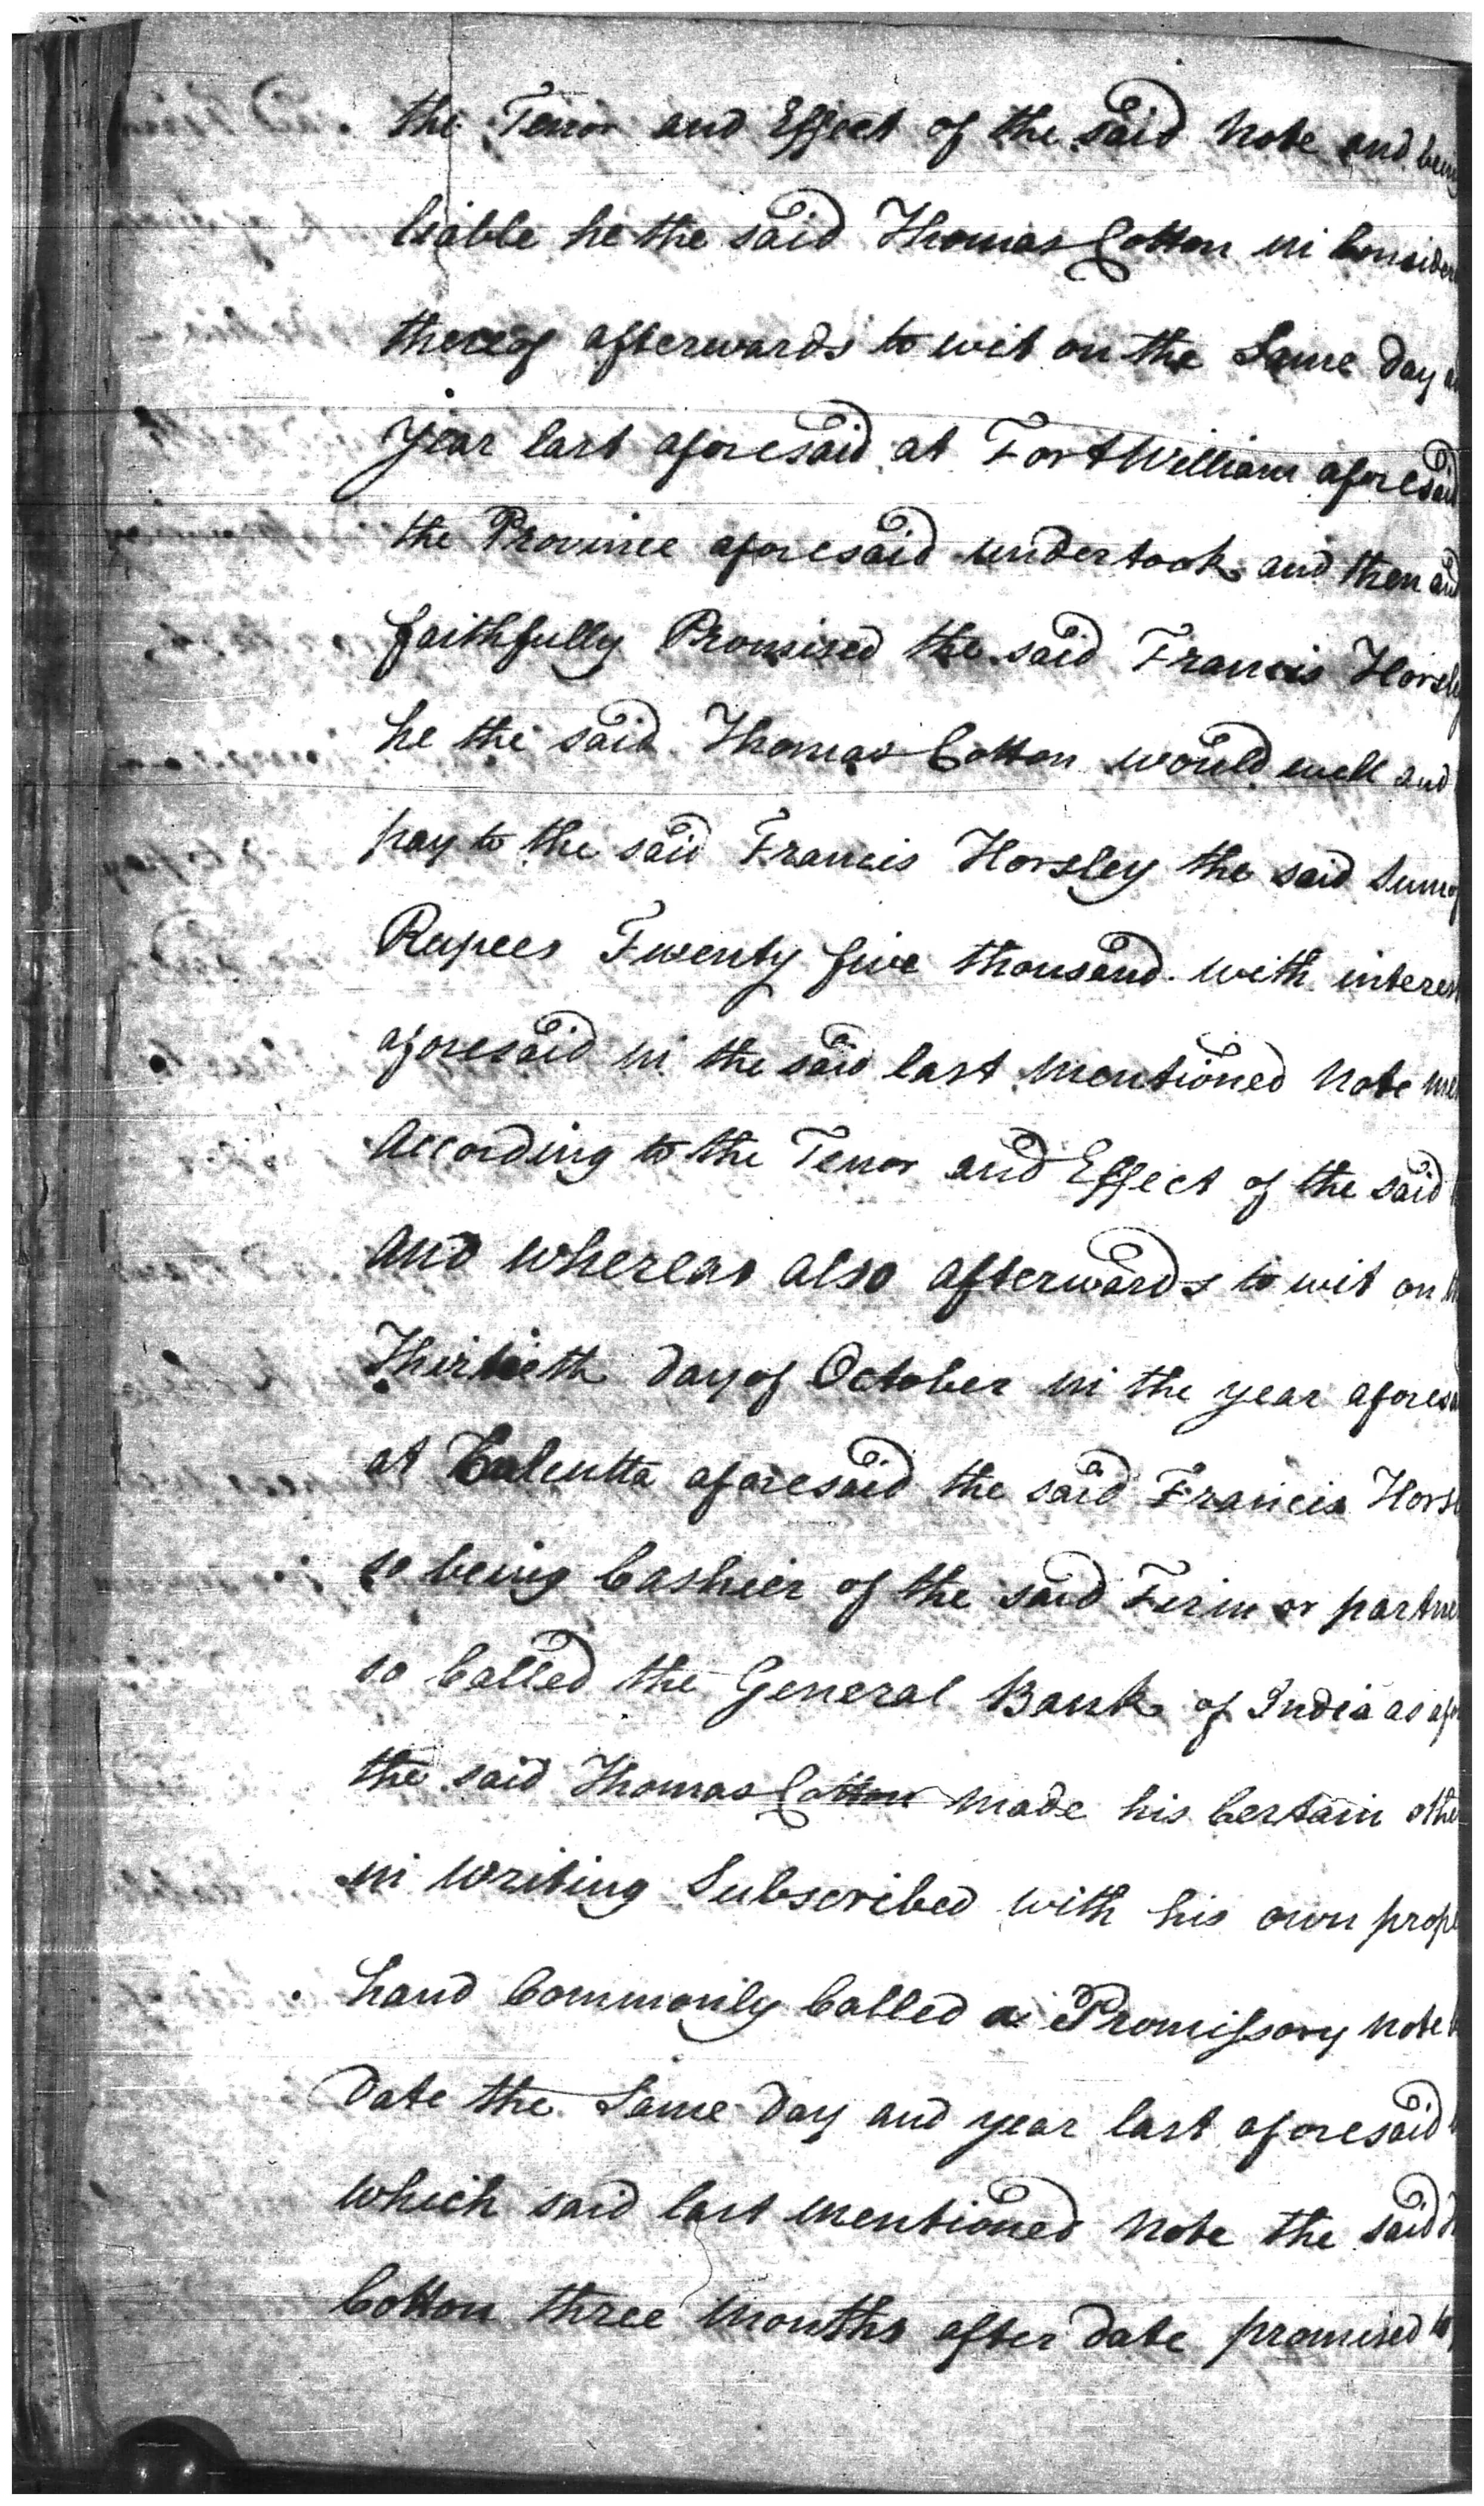 the Tenor and Effect of the said Note and being
liable he the said Thomas Cotton in Consider
thereof afterwards to wit on the Same day a
year last aforesaid at Fort William aforesaid
the Province aforesaid undertook and then and
faithfully Promised the said Francis Horsley
he the said Thomas Cotton would well and
pay to the said Francis Horsley the said Sum of
Rupees Twenty five thousand with interest
aforesaid in the said last mentioned Note me
According to the Tenor and Effect of the said
And whereas also afterwards to wit on th
Thirtieth day of October in the year aforesa
at Calcutta aforesaid the said Francis Horsl
so being Cashier of the said Firm or partner
so Called the General Bank of India as afor
the said Thomas Cotton made his Certain other
in Writing Subscribed with his own prope
hand Commonly Called a Promissory Note b
Date the Same day and year last aforesaid
which said last mentioned Note the said
Cotton three months after date promised to